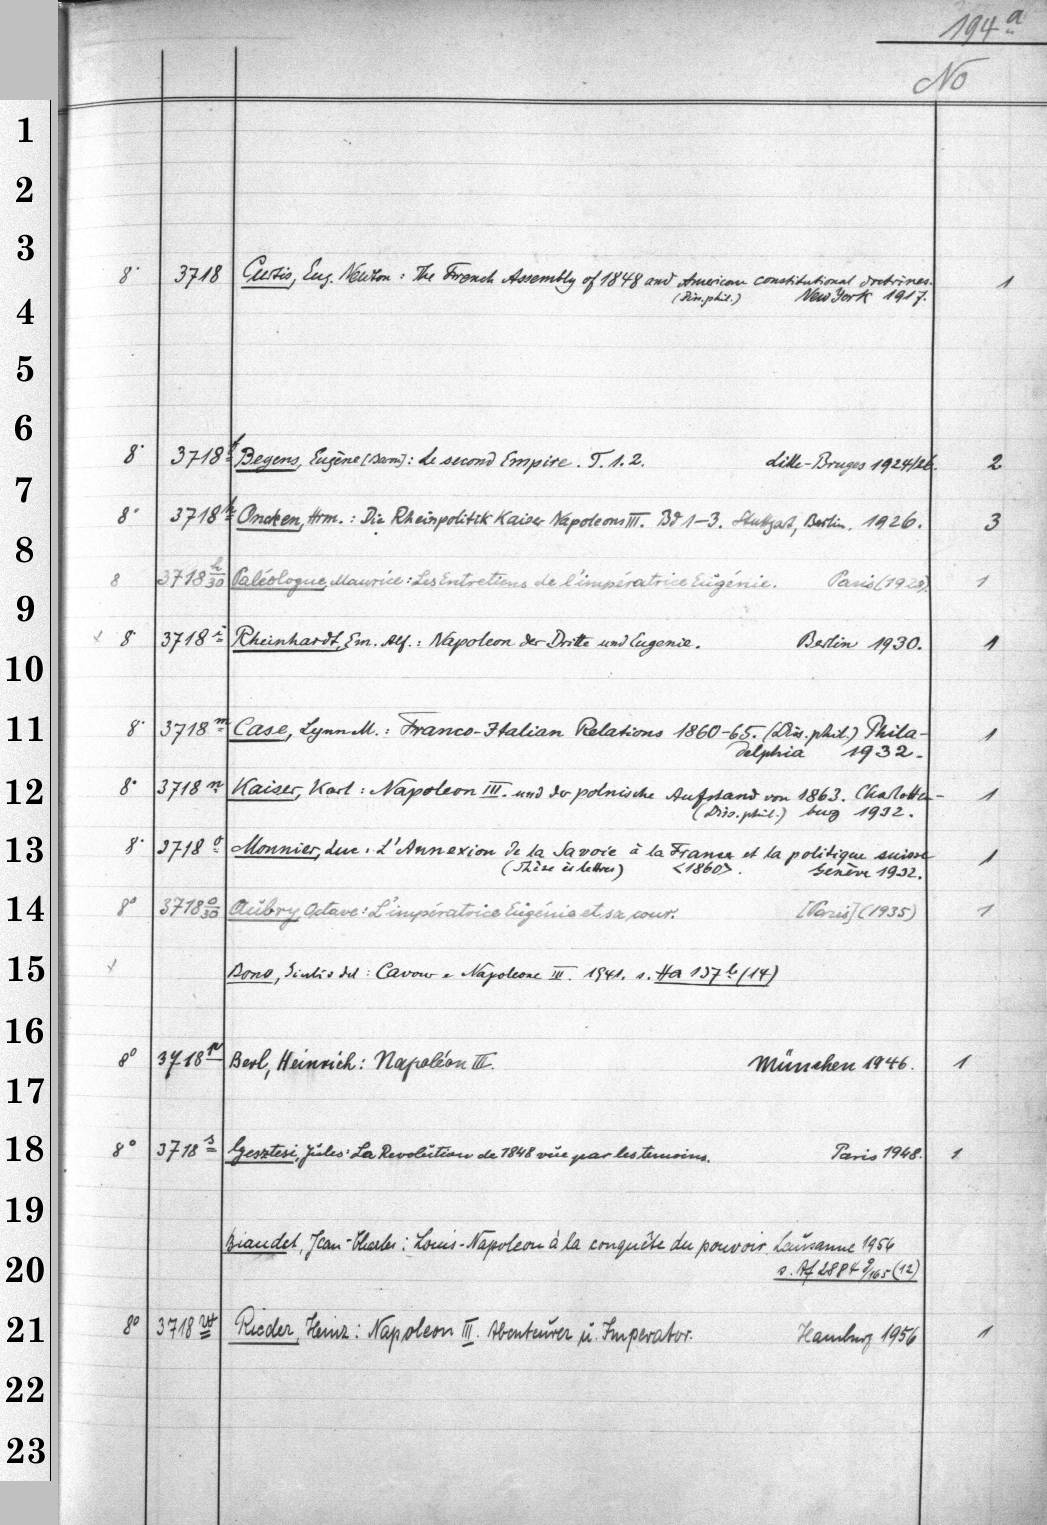 194 a
No
1
2
3
8° 3718 Curtis, Eug. Newton : The French Assembly of 1848 and American constitutional doctrines. 1
(Diss. phil.) New York 1917.
4
5
6
8° 3718 f Begens, Eugène [Baron] : Le second Empire. T. 1. 2. Lille-Bruges 1924/26. 2
7
8° 3718 h Oncken, Hrm. : Die Rheinpolitik Kaiser Napoleons III. Bd 1-3. Stuttgart, Berlin. 1926. 3
8
8 3718 h/30 Paléologue, Maurice : Les Entretiens de l'impératrice Eugénie. Paris (1928). 1
9
× 8° 3718 i Rheinhardt, Em. Alf. : Napoleon der Dritte und Eugenie. Berlin 1930. 1
10
11 8° 3718 m Case, Lynn M. : Franco-Italian Relations 1860-65. (Diss. phil.) Phila- 1
delphia 1932.
12 8° 3718 n Kaiser, Karl : Napoleon III. und der polnische Aufstand von 1863. Charlotten- 1
(Diss. phil.) burg 1932.
13 8° 3718 o Monnier, Luc : L'Annexion de la Savoie à la France et la politique suisse 1
(Thèse ès lettres) <1860>. Genève 1932.
14 8° 3718 o/30 Aubry, Octave : L'impératrice Eugénie et sa cour. [Paris] (1935) 1
15 × Bono, Giulio del : Cavour e Napoleone III. 1941. s. Ha 137 b (14)
16
8° 3718 p Berl, Heinrich : Napoléon III. München 1946. 1
17
18 8° 3718 s Gesztesi, Jules : La Revolution de 1848 vue par les temoins. Paris 1948. 1
19
Biaudet, Jean-Charles : Louis-Napoleon à la conquête du pouvoir. Lausanne 1956
20 s. Af 2884 g/165 (12)
21 8° 3718 Rieder, Heinz : Napoleon III. Abenteurer u. Imperator. Hamburg 1956 1
22
23